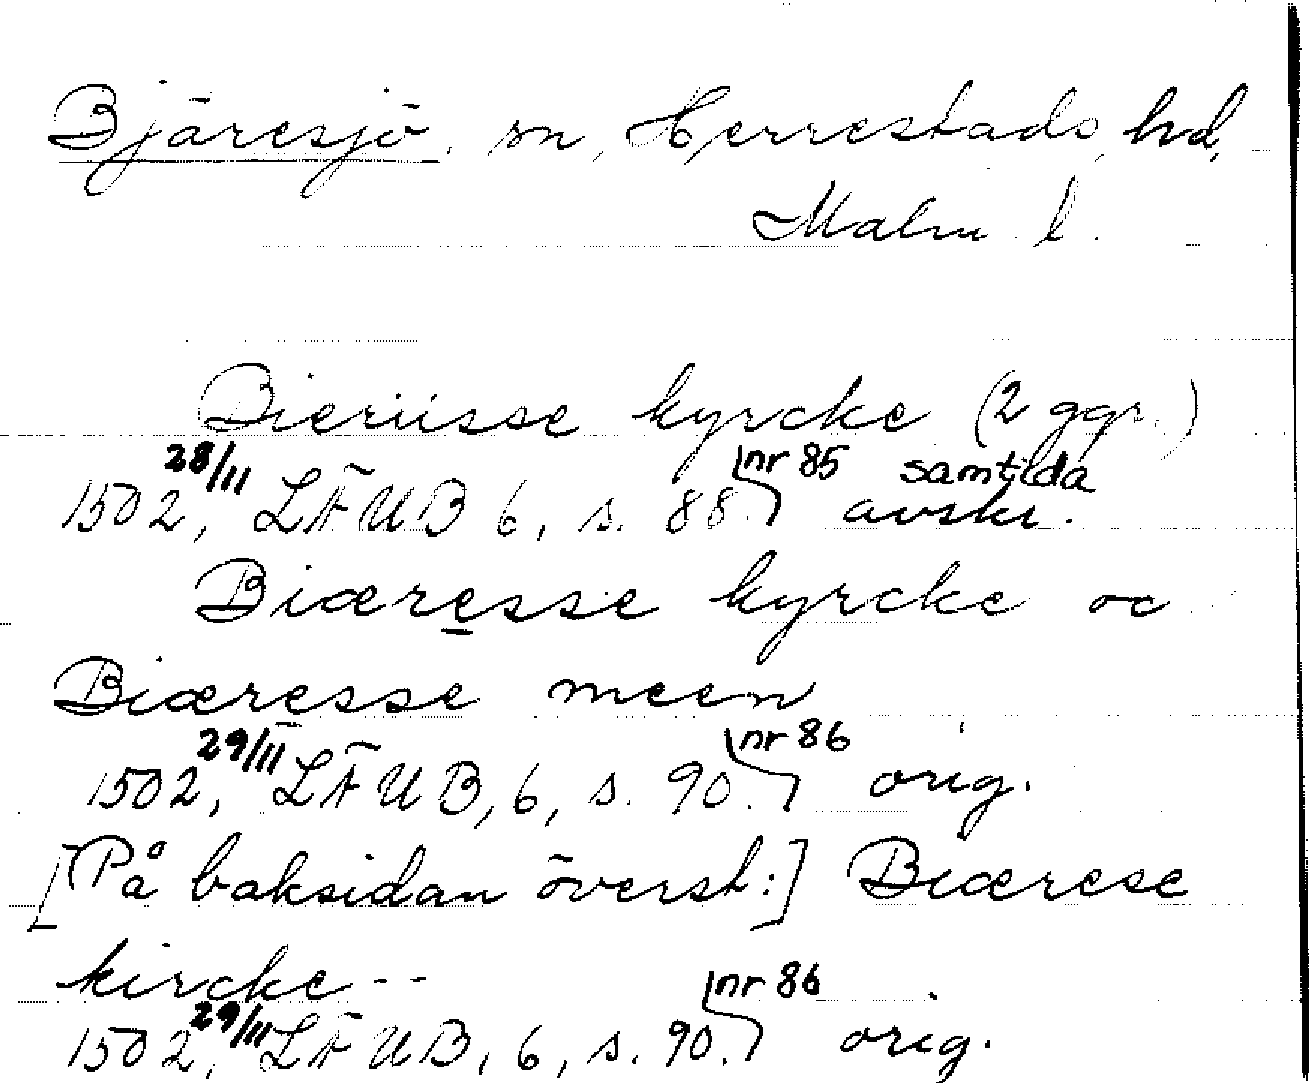 Bjäresjö sn, Herrestads hd,
Malm l.
Bieriisse kyrcke (2 ggr.)
1502, 28/11 LÄUB 6, s. 88. nr 85 samtida avskr.
Biæresse kyrcke oc
Biæresse meen
1502, 29/11 LÄUB, 6, s. 90. nr 86 orig.
[På baksidan överst:] Biærese
kircke --
1502, 29/11 LÄUB, 6, s. 90. nr 86 orig.